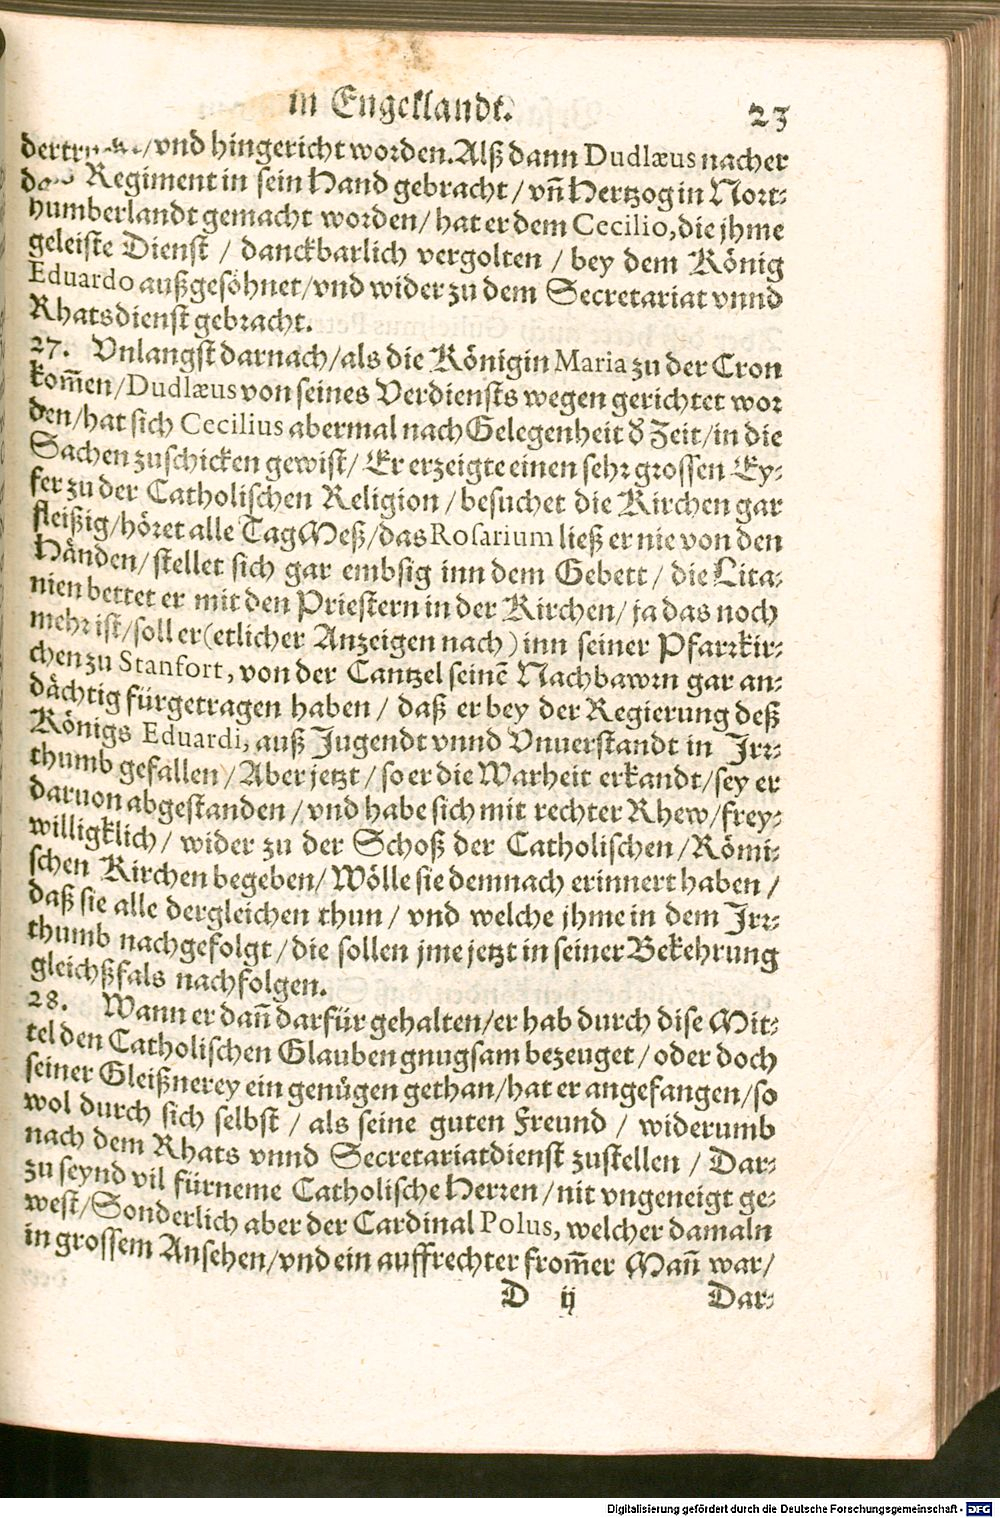 in Engellandt. 23
/vnd hingericht worden. Alß dann Dudlæus nacher
Regiment in sein Hand gebracht / vñ Hertzog in Nort⸗
humberlandt gemacht worden / hat er dem Cecilio, die jhme
geleiste Dienst / danckbarlich vergolten / bey dem König
Eduardo außgesöhnet / vnd wider zu dem Secretariat vnnd
Rhatsdienst gebracht.
27. Vnlangst darnach / als die Königin Maria zu der Cron
kom̃en / Dudlæus von seines Verdiensts wegen gerichtet wor
den / hat sich Cecilius abermal nach Gelegenheit d̕ Zeit / in die
Sachen zuschicken gewist / Er erzeigte einen sehr grossen Ey⸗
fer zu der Catholischen Religion / besuchet die Kirchen gar
fleißig / höret alle Tag Meß / das Rosarium ließ er nie von den
Händen / stellet sich gar embsig inn dem Gebett / die Lita⸗
nien bettet er mit den Priestern in der Kirchen / ja das noch
mehr ist / soll er (etlicher Anzeigen nach) inn seiner Pfarrkir⸗
chen zu Stanfort, von der Cantzel seinẽ Nachbawrn gar an⸗
dächtig fürgetragen haben / daß er bey der Regierung deß
Königs Eduardi, auß Jugendt vnnd Vnuerstandt in Irr⸗
thumb gefallen / Aber jetzt / so er die Warheit erkandt / sey er
daruon abgestanden / vnd habe sich mit rechter Rhew / frey⸗
willigklich / wider zu der Schoß der Catholischen / Römi⸗
schen Kirchen begeben / Wölle sie demnach erinnert haben /
daß sie alle dergleichen thun / vnd welche jhme in dem Irr⸗
thumb nachgefolgt / die sollen jme jetzt in seiner Bekehrung
gleichßfals nachfolgen.
28. Wann er dañ darfür gehalten / er hab durch dise Mit⸗
tel den Catholischen Glauben gnugsam bezeuget / oder doch
seiner Gleißnerey ein genügen gethan / hat er angefangen / so
wol durch sich selbst / als seine guten Freund / widerumb
nach dem Rhats vnnd Secretariatdienst zustellen / Dar⸗
zu seynd vil fürneme Catholische Herren / nit vngeneigt ge⸗
west / Sonderlich aber der Cardinal Polus, welcher damaln
in grossem Ansehen / vnd ein auffrechter from̃er Mañ war /
D ij Dar⸗
Digitalisierung gefördert durch die Deutsche Forschungsgemeinschaft - DFG